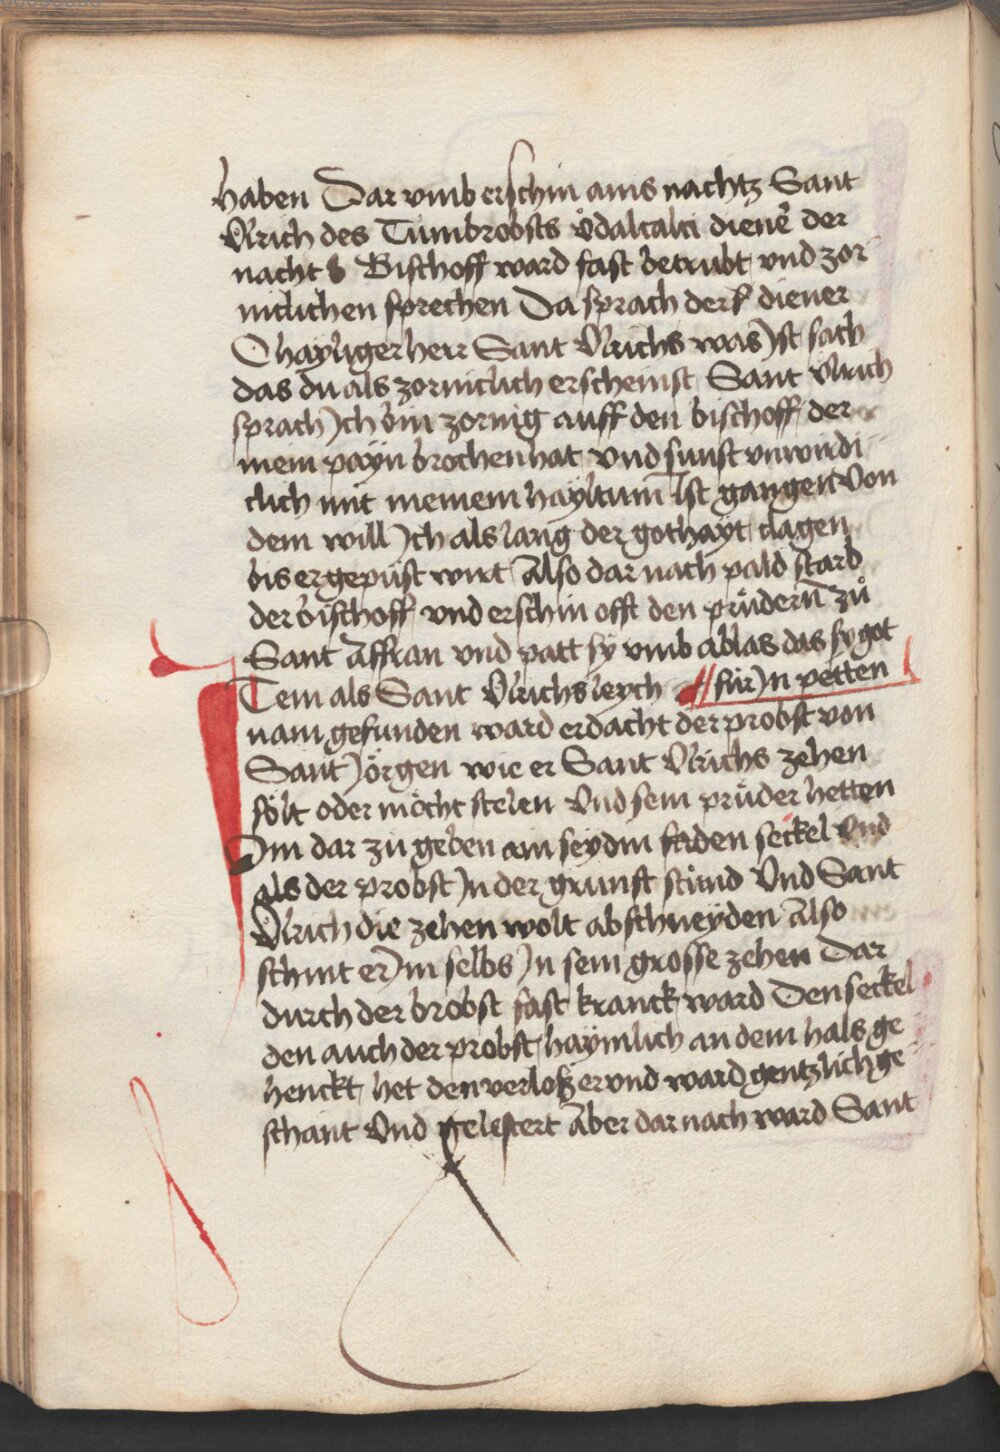 haben Dar vmb erschin ains nachtz Sant
Vlrich des Tumbrobsts vͦdalcalci dienẻ der
nacht Bischoff ward fast betrubt vnd zor
niclichen sprechen Da sprach der diener
O hayliger herr Sant Vlrichs was Jst sach
das du als zorniclich erscheinst Sant vlrich
sprach Jch bin zornig auff den bischoff der
mein payn brochen hat vnd sunst vnwirdi
clich mit meinem hayltum̄ Ist gangen Von
dem will Jch als lang der gothayt clagen
bis er gepust wirt Also dar nach pald starb
der bischoff vnd erschin offt den pruͤdern̄ zuͦ
Sant Affran vnd patt sy vmb ablas das sy got
Tem als Sant Vlrichs leych // fur Jn petten
nam gefunden ward erdacht der probst von
Sant Joͤrgen wie er Sant Vlrichs zehen
soͤlt oder moͤcht stelen Vnd sein pruͤder hetten
Jm dar zu geben ain seydin faden seckel vnd
als der probst Jn der grunft stund Vnd Sant
Vlrich die zehen wolt abschneyden Also
schnit er Jm selbs Jn sein grosse zehen Dar
durch der brobst fast kranck ward Den seckel
den auch der probst haymlich an dem hals ge
henckt het den verlosz er vnd ward gentzlich ge
schant Vnd gelestert Aber dar nach ward Sant